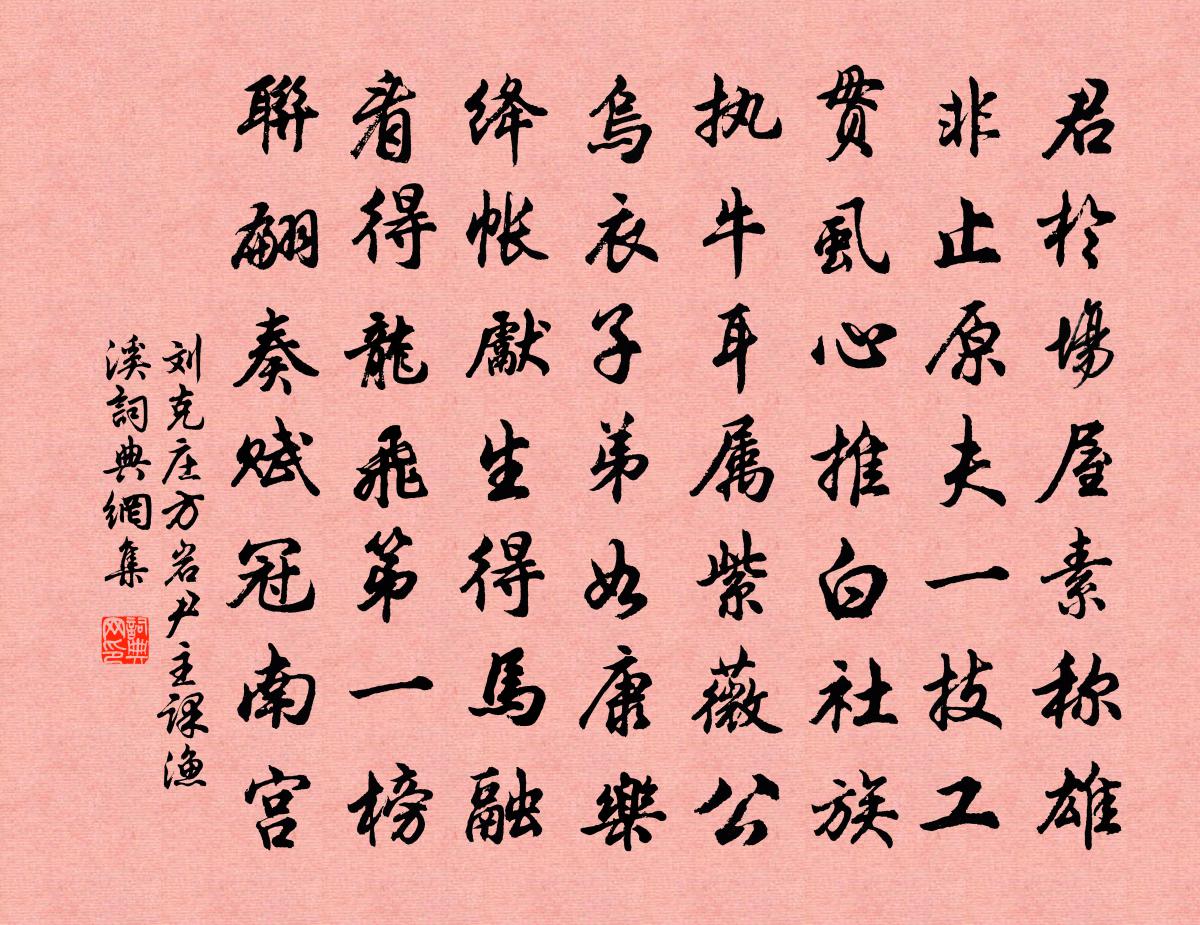 君於場屋素称雄
非止原夫一技工
贯虱心推白社族
执牛耳属紫薇公
烏衣子弟如康樂
絳帐獻生得馬融
看得龍飛第一榜
聯翩奏赋冠南宫
刘克庄方岩尹主課漁
溪詞典網集
詞典网印